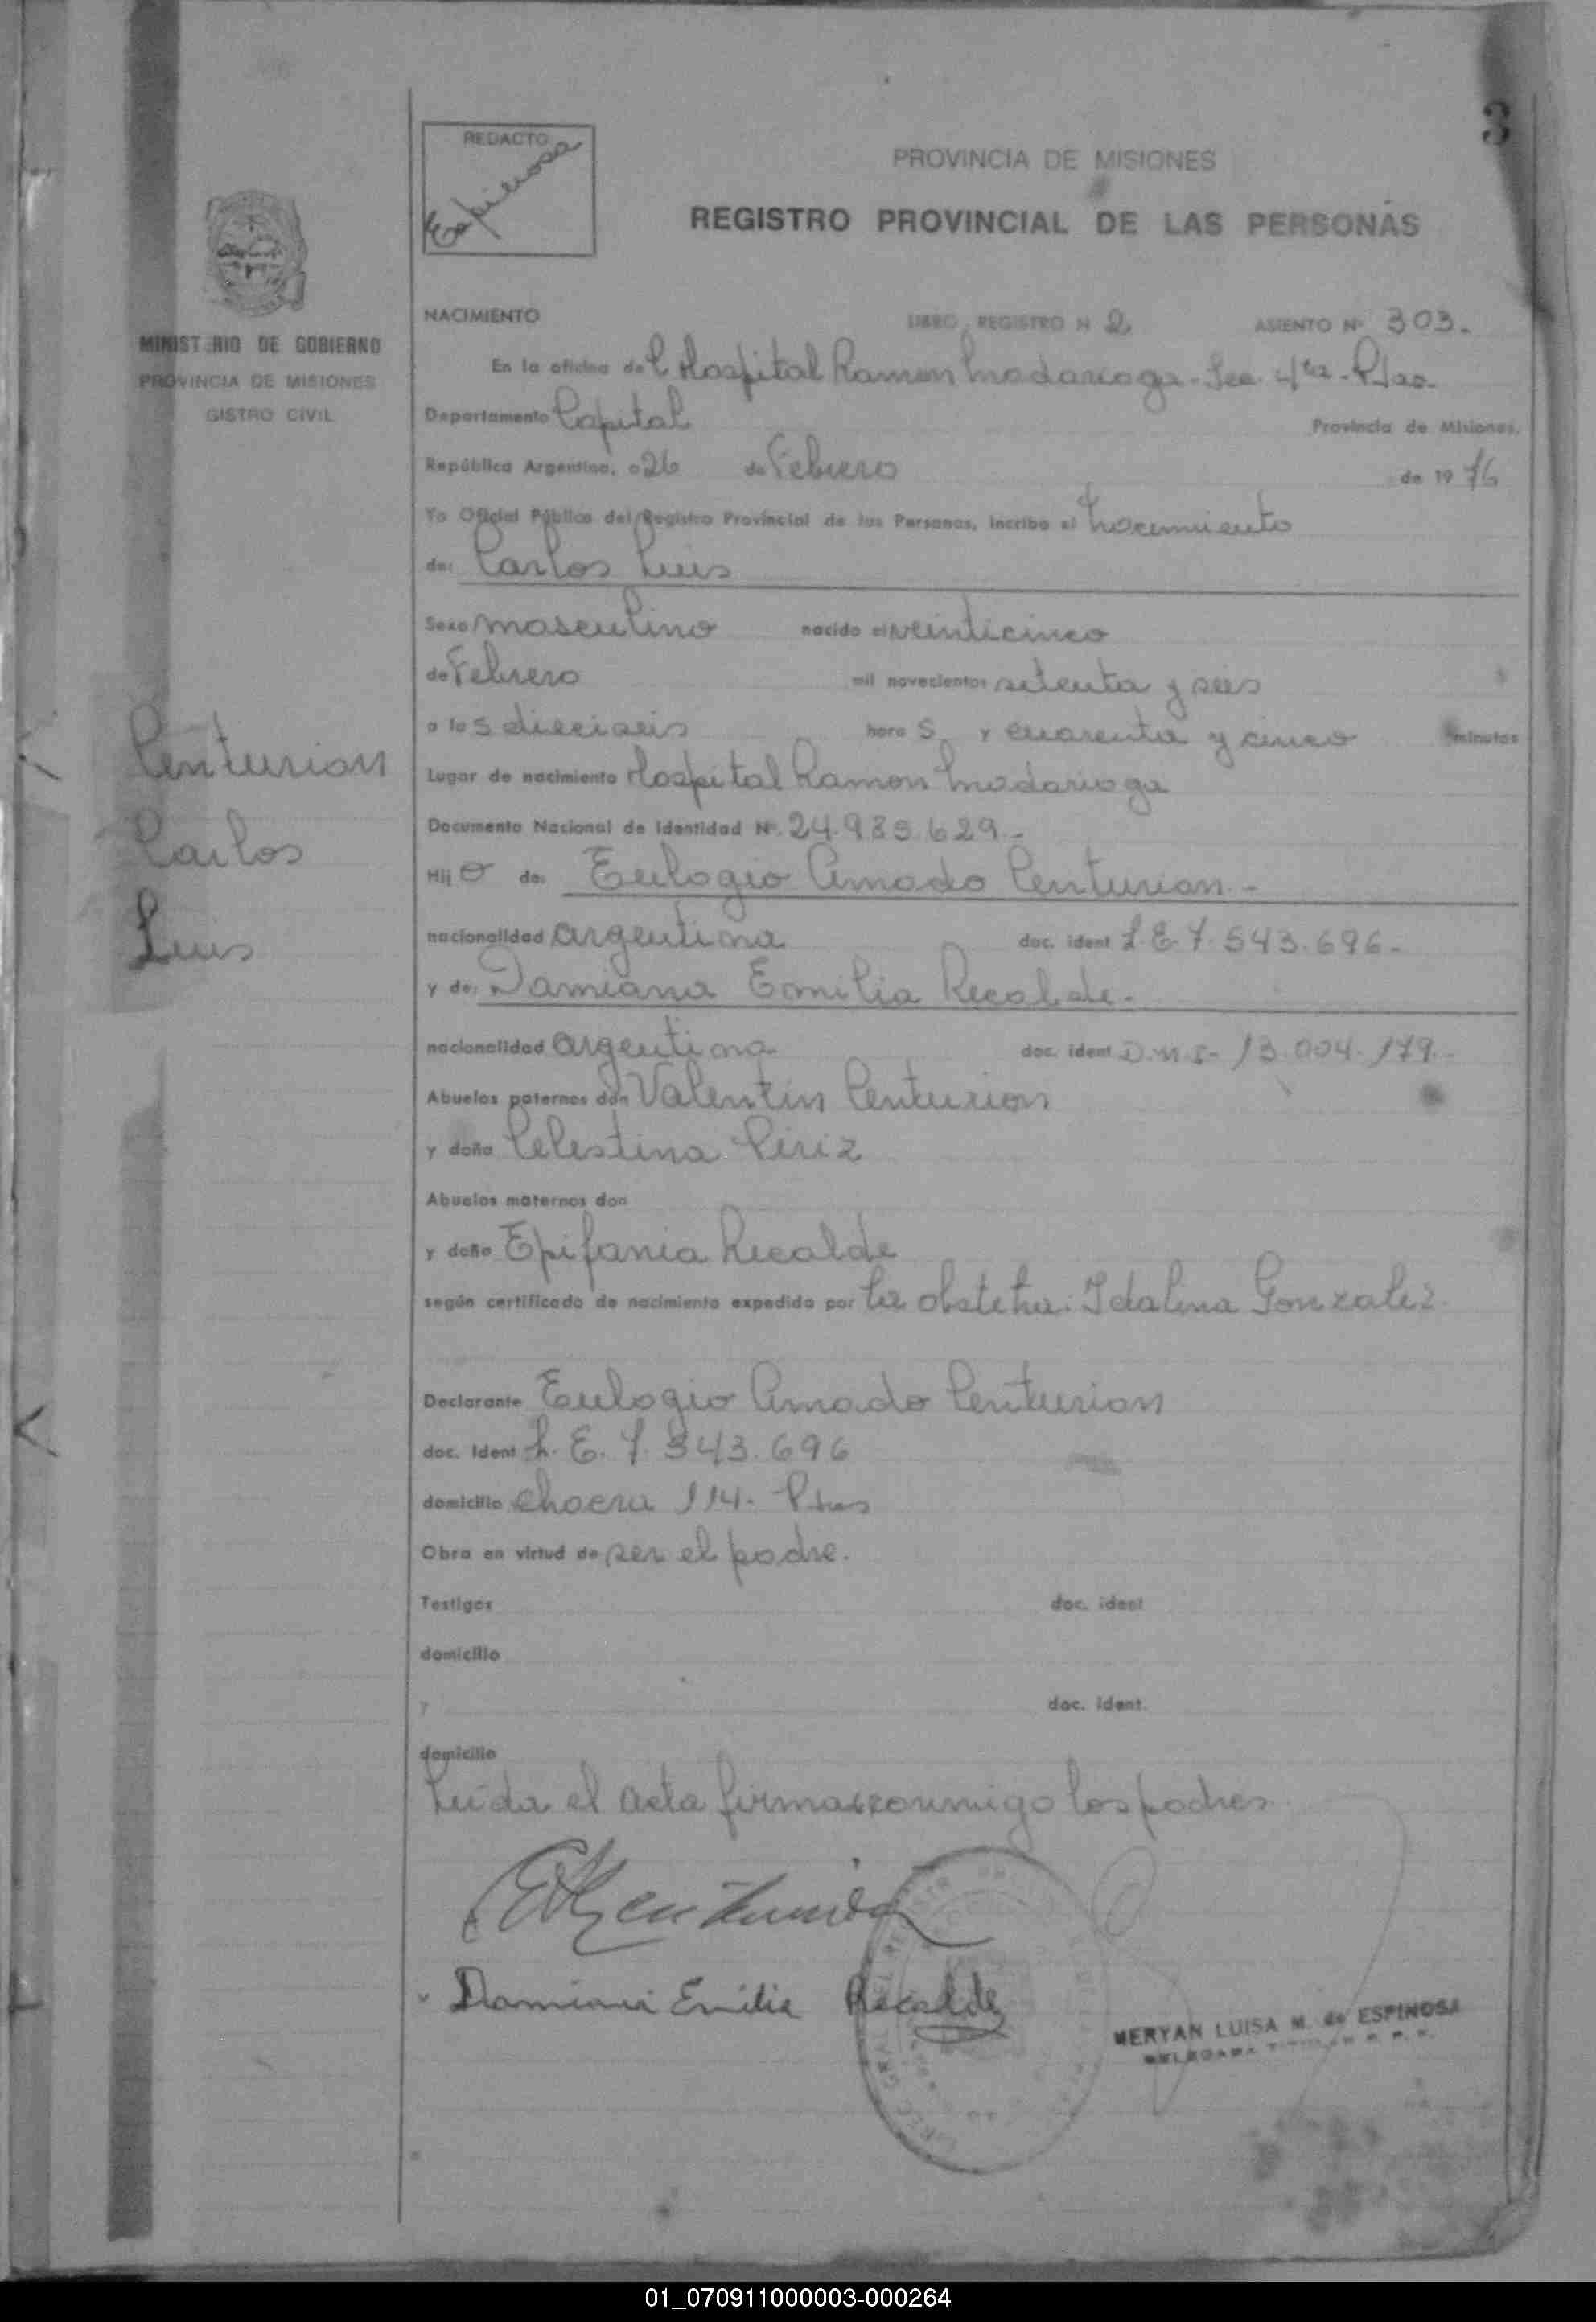 3
REDACTO
Espinosa
PROVINCIA DE MISIONES
REGISTRO PROVINCIAL DE LAS PERSONAS
MINISTERIO DE GOBIERNO
PROVINCIA DE MISIONES
GISTRO CIVIL
NACIMIENTO LIBRO REGISTRO N 2 ASIENTO Nº 303.-
En la oficina del Hospital Ramon Madariaga - Sec. 4ta - Pdas.
Departamento Capital Provincia de Misiones,
República Argentina, a 26 de Febrero de 1976
Yo Oficial Público del Registro Provincial de las Personas, inscribo el Nacimiento
de: Carlos Luis
Sexo masculino nacido el veinticinco
de Febrero mil novecientos setenta y seis
a las dieciseis horas y cuarenta y cinco minutos
Centurion
Carlos
Luis
Lugar de nacimiento Hospital Ramon Madariaga
Documento Nacional de Identidad Nº. 24.985.629.-
Hijo de: Eulogio Amado Centurion.-
nacionalidad argentina doc. ident L.E. 7.543.696.-
y de: Damiana Emilia Recalde.-
nacionalidad argentina doc. ident D.N.I- 13.004.179.-
Abuelos paternos don Valentin Centurion
y doña Celestina Piriz
Abuelos maternos don
y doña Epifania Recalde
según certificado de nacimiento expedido por la obstetra: Idalina Gonzalez.
Declarante Eulogio Amado Centurion
doc. Ident L. E. 7.543.696
domicilio chacra 114. Pdas
Obra en virtud de ser el padre.
Testigos doc. ident
domicilio
y doc. ident.
domicilio
Leída el acta firman conmigo los padres
Damiana Emilia Recalde
MERYAN LUISA M. de ESPINOSA
01_070911000003-000264